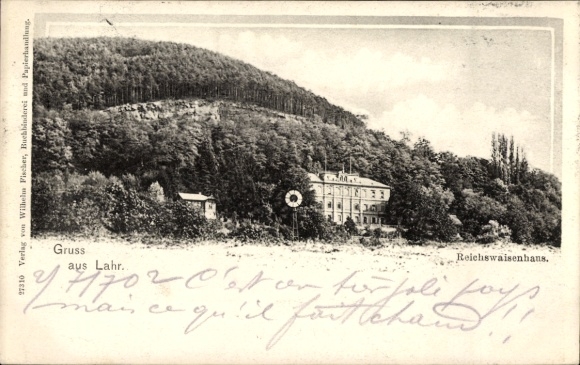 27310 Verlag von Wilhelm Fischer, Buchbinderei und Papierhandlung.
Gruss
aus Lahr.
Reichswaisenhaus.
7/702 C'est un très joli pays
mais ce qu'il fait chaud!!